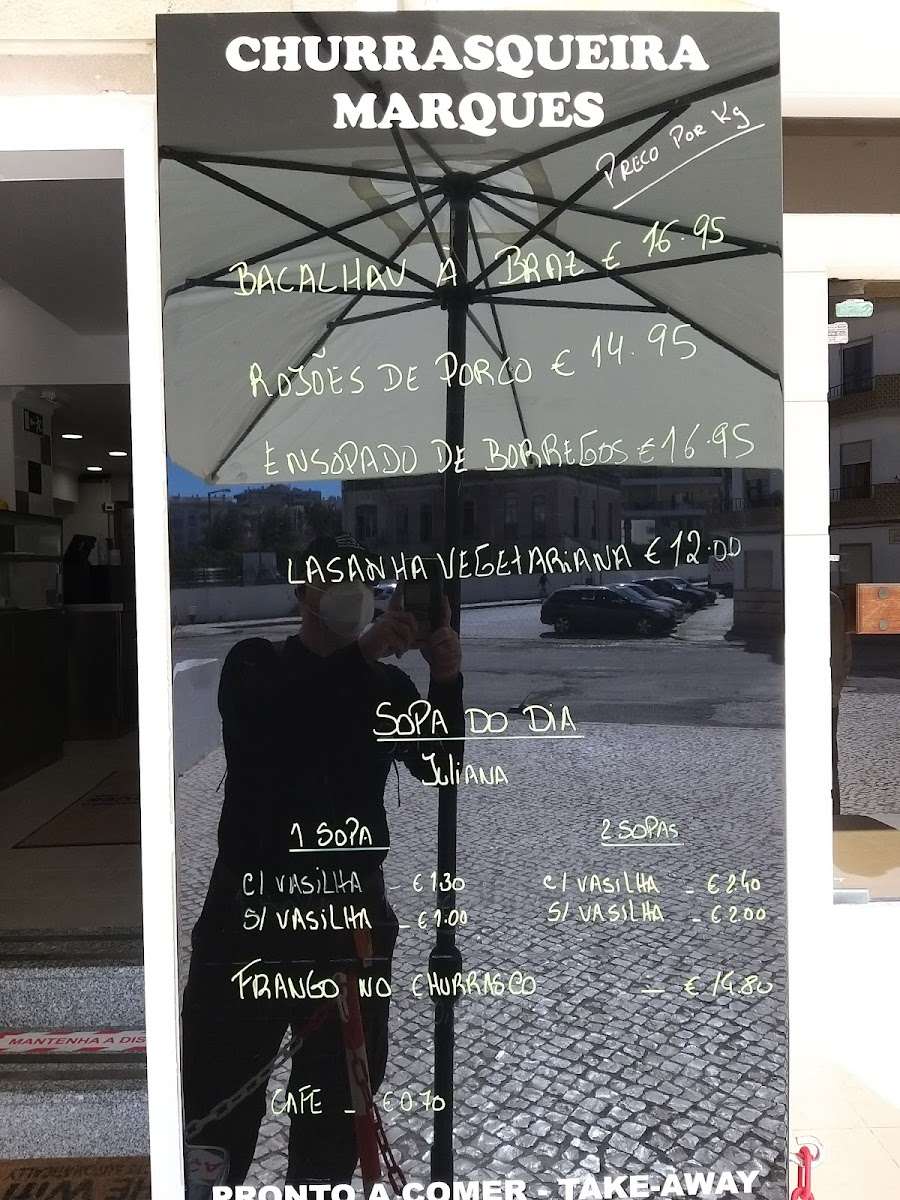 CHURRASQUEIRA
MARQUES
PRECO POR Kg
BACALHAU À BRAZ € 16.95
ROJÕES DE PORCO € 14.95
ENSOPADO DE BORREGOS € 16.95
LASANHA VEGETARIANA € 12.00
SOPA DO DIA
JULIANA
1 SOPA
2 SOPAS
C/ VASILHA - € 1.30
C/ VASILHA - € 2.40
S/ VASILHA - € 1.00
S/ VASILHA - € 2.00
FRANGO NO CHURRASCO - € 14.80
CAFE - € 0.70
MANTENHA A DIS
PRONTO A COMER - TAKE-AWAY